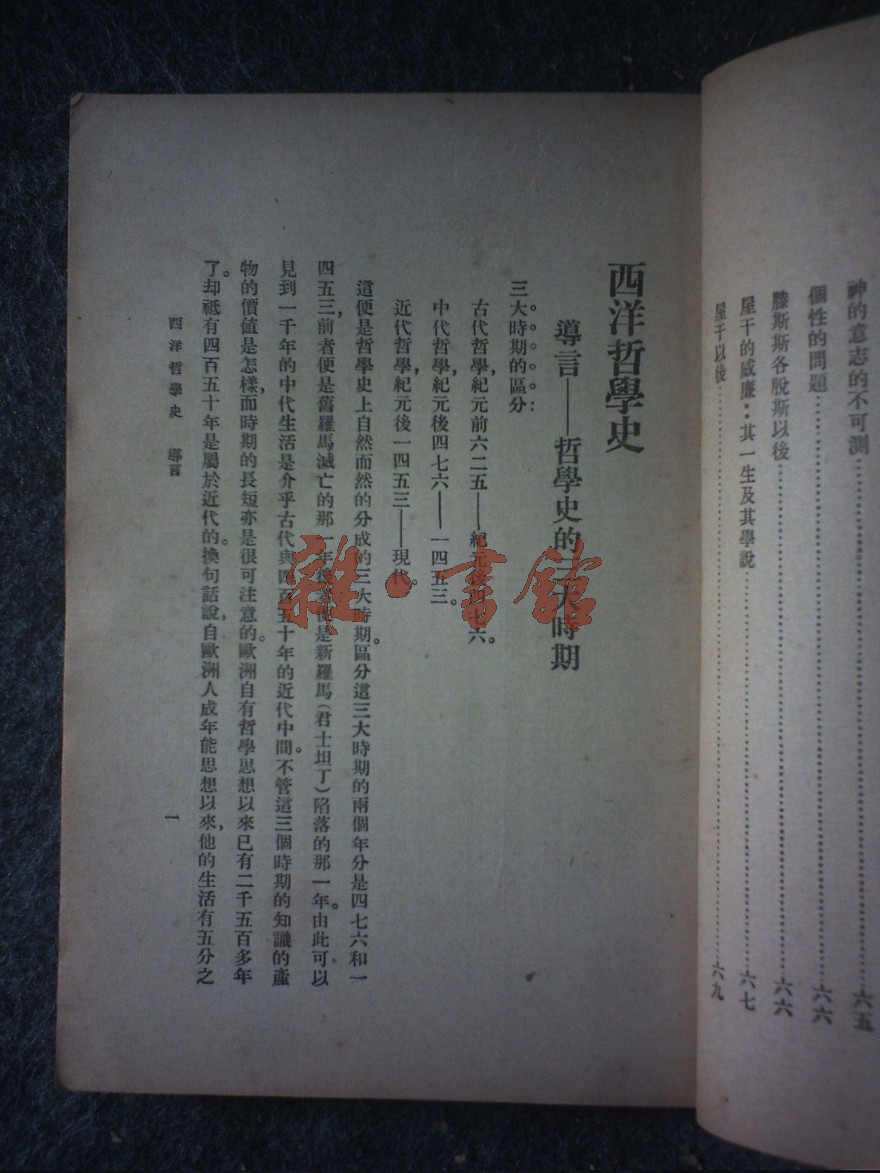 神的意志的不可測……六五
個性的問題……六六
滕斯斯各脫斯以後……六六
屋干的威廉：其一生及其學說……六七
屋干以後……六九
西洋哲學史
導言——哲學史的三大時期
三大時期的區分：
古代哲學，紀元前六二五——紀元後四七六。
中代哲學，紀元後四七六——一四五三。
近代哲學，紀元後一四五三——現代。
這便是哲學史上自然而然的分成的三大時期。區分這三大時期的兩個年分是四七六和一
四五三，前者便是舊羅馬滅亡的那一年，後者便是新羅馬（君士坦丁）陷落的那一年。由此可以
見到一千年的中代生活是介乎古代與四百五十年的近代中間。不管這三個時期的知識的產
物的價值是怎樣，而時期的長短亦是很可注意的。歐洲自有哲學思想以來已有二千五百多年
了。却祗有四百五十年是屬於近代的。換句話說，自歐洲人成年能思想以來，他的生活有五分之
西洋哲學史 導言
一
雜·書館